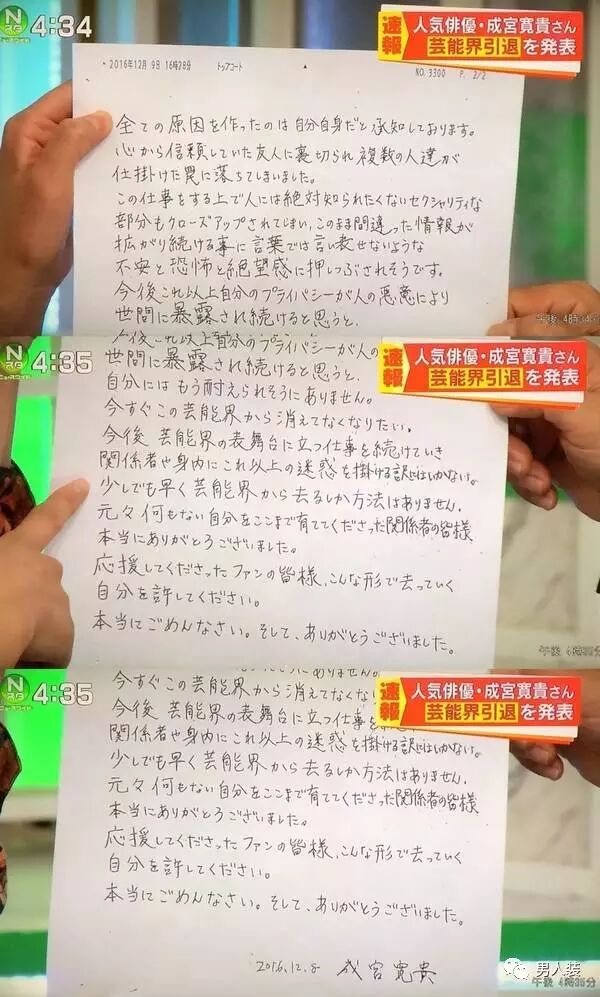 Nスタ
ニュースワイド
4:34
速報
人気俳優・成宮寛貴さん
芸能界引退を発表
2016年12月 9日 16時28分 トップコート NO. 3300 P. 2/2
全ての原因を作ったのは自分自身だと承知しております。
心から信頼していた友人に裏切られ複数の人達が
仕掛けた罠に落ちてしまいました。
この仕事をする上で人には絶対知られたくないセクシャリティな
部分もクローズアップされてしまい、このまま間違った情報が
拡がり続ける事に言葉では言い表せないような
不安と恐怖と絶望感に押しつぶされそうです。
今後これ以上自分のプライバシーが人の悪意により
世間に暴露され続けると思うと、
午後 4時34分
Nスタ
ニュースワイド
4:35
速報
人気俳優・成宮寛貴さん
芸能界引退を発表
今後これ以上自分のプライバシーが人の
世間に暴露され続けると思うと、
自分にはもう耐えられそうにありません。
今すぐこの芸能界から消えてなくなりたい。
今後芸能界の表舞台に立つ仕事を続けていき
関係者や身内にこれ以上の迷惑を掛ける訳にはいかない。
少しでも早く芸能界から去るしか方法はありません。
元々何もない自分をここまで育ててくださった関係者の皆様
本当にありがとうございました。
応援してくださったファンの皆様、こんな形で去っていく
自分を許してください。
本当にごめんなさい。そして、ありがとうございました。
午後 4時35分
Nスタ
ニュースワイド
4:35
速報
人気俳優・成宮寛貴さん
芸能界引退を発表
今すぐこの芸能界から消えてなくな
今後芸能界の表舞台に立つ仕事を
関係者や身内にこれ以上の迷惑を掛ける訳にはいかない。
少しでも早く芸能界から去るしか方法はありません。
元々何もない自分をここまで育ててくださった関係者の皆様
本当にありがとうございました。
応援してくださったファンの皆様、こんな形で去っていく
自分を許してください。
本当にごめんなさい。そして、ありがとうございました。
2016.12.8 成宮寛貴
男人装
午後 4時35分